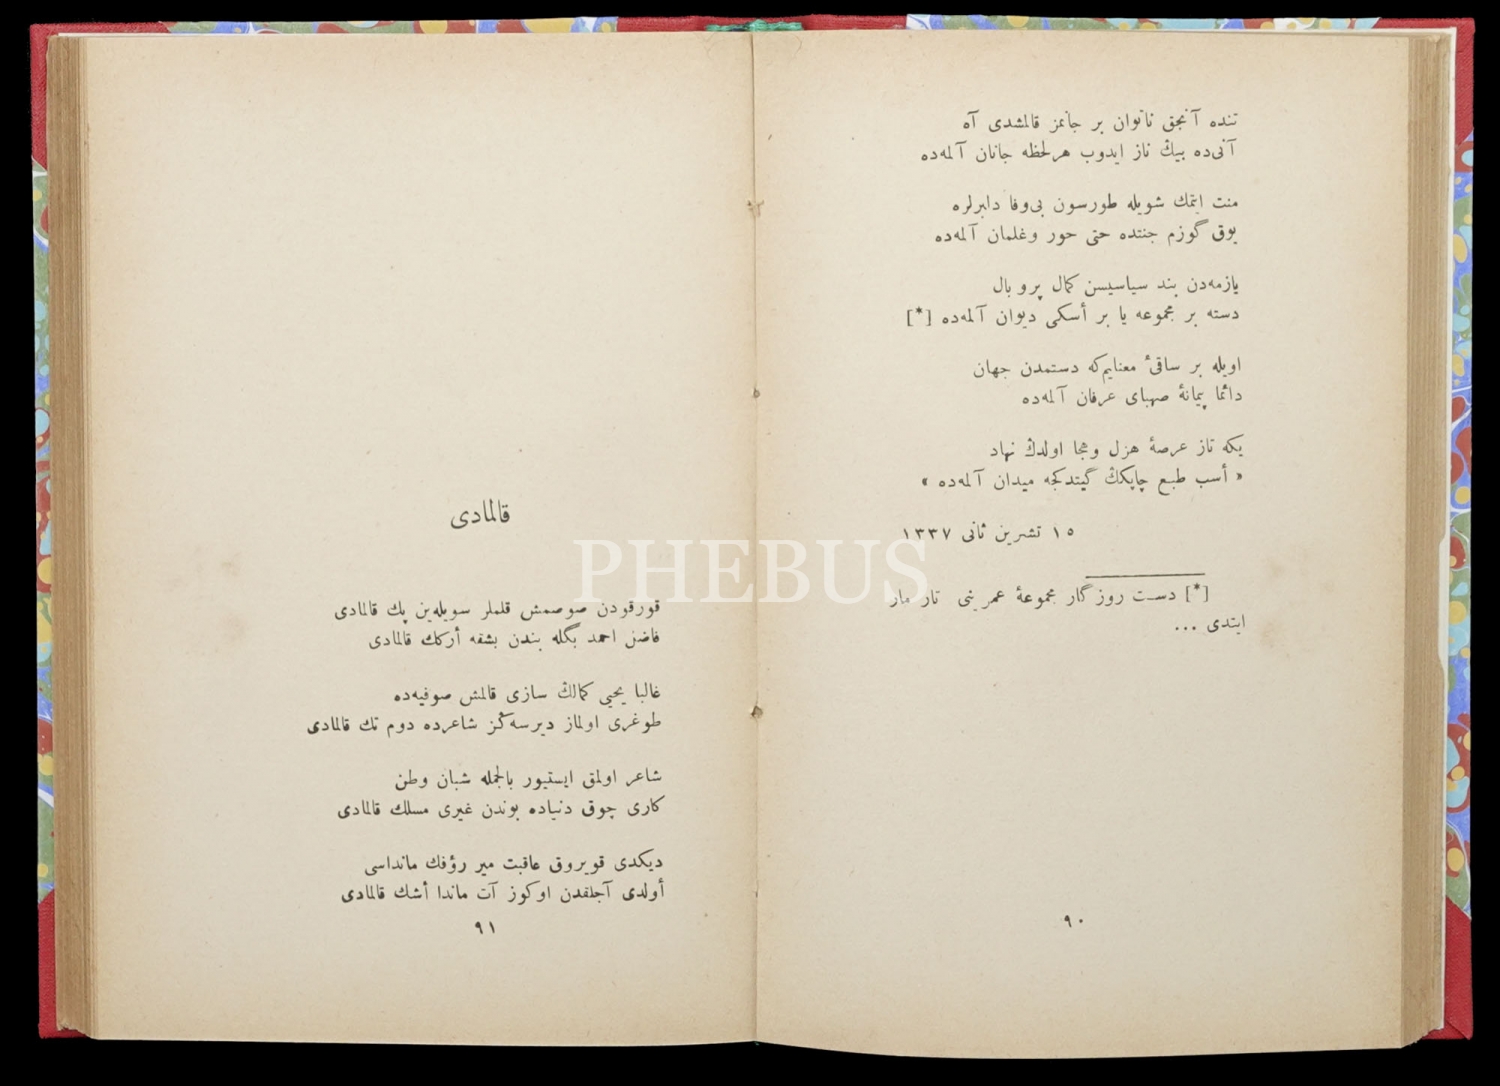 تنده آنجق ناتوان بر جانمز قالمشدی آه
آنی‌ده بیڭ ناز ایدوب هر لحظه جانان آلمه‌ده
منت ایتمك شویله طورسون بی‌وفا دلبرلره
یوق گوزم جنتده حتی حور وغلمان آلمه‌ده
یازمه‌دن بند سیاسیسن کمال پر و بال
دسته بر مجموعه یا بر أسکی دیوان آلمه‌ده [*]
اویله بر ساقئ معنایم‌که دستمدن جهان
دائما پیمانهٔ صهبای عرفان آلمه‌ده
یکه تاز عرصهٔ هزل وهجا اولدڭ نهاد
« أسب طبع چاپکڭ گیتدکجه میدان آلمه‌ده »
١٥ تشرین ثانی ١٣٣٧
[*] دست روزگار مجموعهٔ عمرینی تار مار
ایتدی ...
٩٠
قالمادی
قورقودن صوصمش قلملر سویله‌ین پك قالمادی
فاضل احمد بگله بندن بشقه أرکك قالمادی
غالبا یحیی کمالڭ سازی قالمش صوفیه‌ده
طوغری اولماز دیرسه‌ڭز شاعرده دوم تك قالمادی
شاعر اولمق ایستیور بالجمله شبان وطن
کاری چوق دنیاده بوندن غیری مسلك قالمادی
دیکدی قویروق عاقبت میر رؤفك مانداسی
أولدی آجلقدن اوکوز آت ماندا أشك قالمادی
٩١
PHEBUS